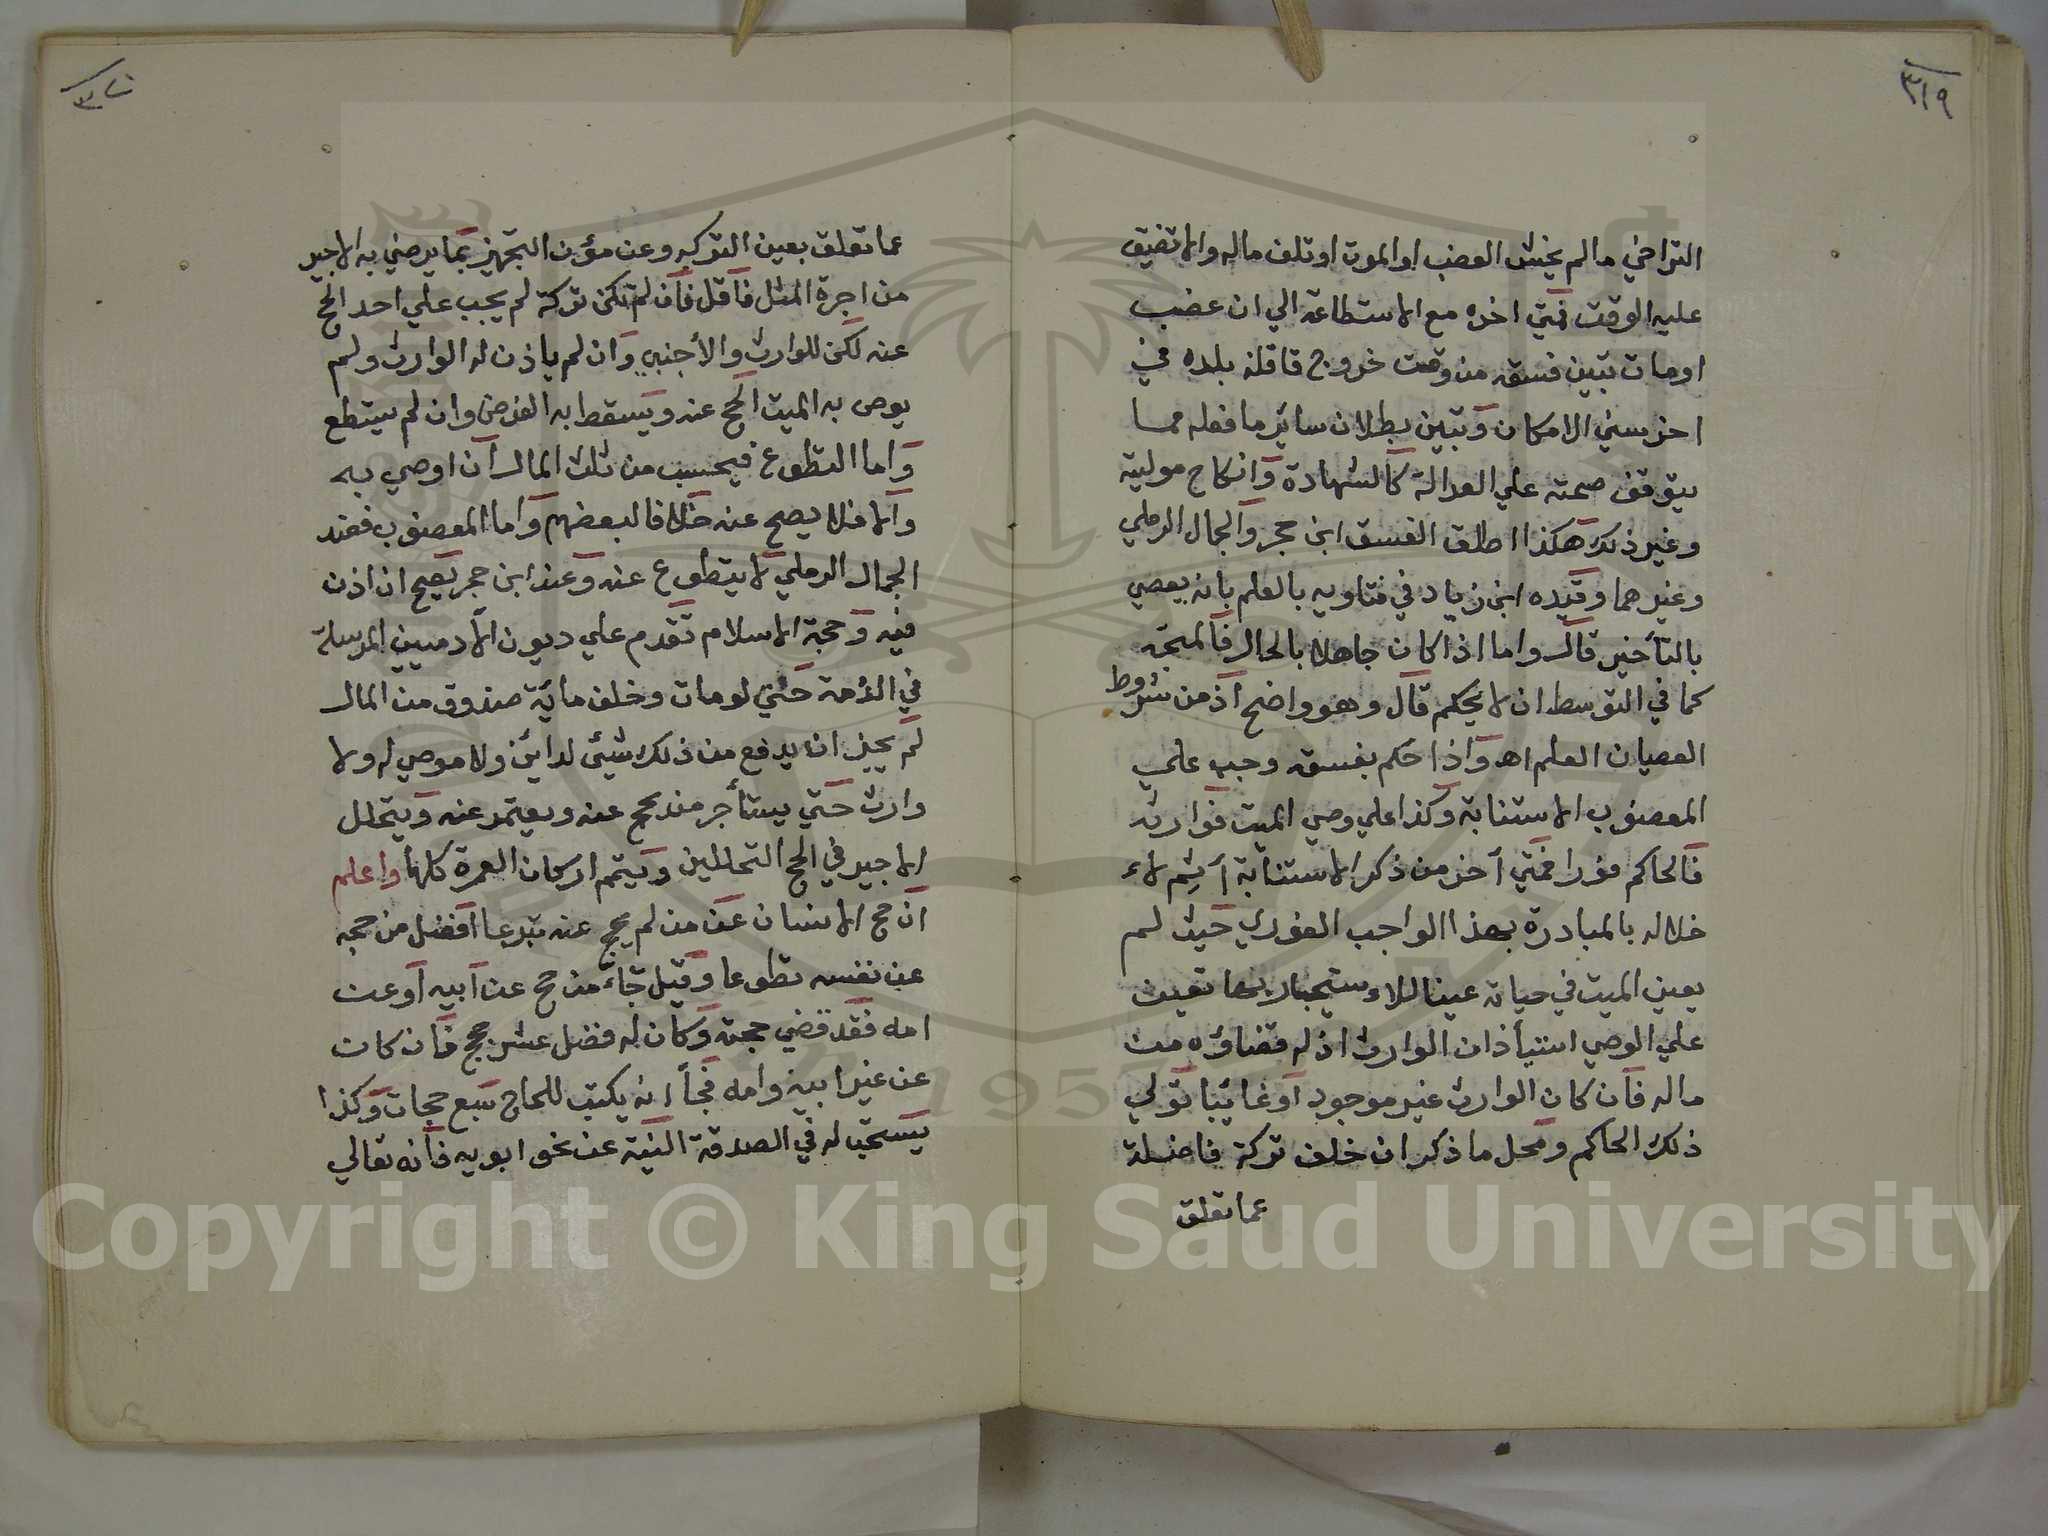 ٣١٩
التراخي مالم يخش العضب او الموت او تلف ماله والا تضيق
عليه الوقت فمتي اخره مع الاستطاعة الي ان عضب
او مات تبين فسقه من وقت خروج قافلة بلده في
اخر سني الامكان وتبين بطلان ساير ما فعله مما
يتوقف صحته علي العدالة كالشهادة وانكاح موليته
وغير ذلك هكذا اطلق الفسق ابن حجر والجمال الرملي
وغيرهما وقيده ابن زياد في فتاويه بالعلم بانه يعصي
بالتأخير قال واما اذا كان جاهلا بالحال فالمتجه
كما في التوسط ان لا يحكم قال وهو واضح اذ من شروط
العصيان العلم اهـ واذا حكم بفسقه وجب علي
المعضوب الاستنابة وكذا علي وصي الميت فوارثه
فالحاكم فورا فمتي اخر من ذكر الاستنابة أثم لاء
خلاله بالمبادرة بهذا الواجب الفوري حيث لم
يعين الميت في حياته عينا للاستيجار بها تعين
علي الوصي استيأذان الوارث اذ له قضاؤه من
ماله فان كان الوارث غير موجود او غايبا تولي
ذلك الحاكم ومحل ما ذكر ان خلف تركة فاضلة
عما تعلق
٣٢٠
عما تعلق بعين التركه وعن مؤن التجهيز بما يرضي به الاجير
من اجرة المثل فاقل فان لم تكن تركة لم يجب علي احد الحج
عنه لكن للوارث والأجنبي وان لم ياذن له الوارث ولم
يوص به الميت الحج عنه ويسقط به الفرض وان لم يستطع
واما التطوع فيحسب من ثلث المال ان اوصي به
والا فلا يصح عنه خلافا لبعضهم واما المعضوب فعند
الجمال الرملي لا يتطوع عنه وعند ابن حجر يصح ان اذن
فيه وحجة الاسلام تقدم علي ديون الآدميين المرسلة
في الذمة حتي لو مات وخلف ماية صندوق من المال
لم يجز ان يدفع من ذلك شيئ لداين ولا موصي له ولا
وارث حتي يستأجر من يحج عنه ويعتمر عنه ويتحلل
الاجير في الحج التحاللين ويتمم اركان العمرة كلها واعلم
ان حج الانسان عن من لم يحج عنه تبرعا افضل من حجه
عن نفسه تطوعا وقيل جاء من حج عن ابيه او عن
امه فقد قضي حجته وكان له فضل عشر حجج فان كان
عن غير ابيه وامه فجاء انه يكتب للحاج سبع حجات وكذا
يستحب له في الصدقة النية عن نحو ابويه فانه تعالي
Copyright © King Saud University
1957